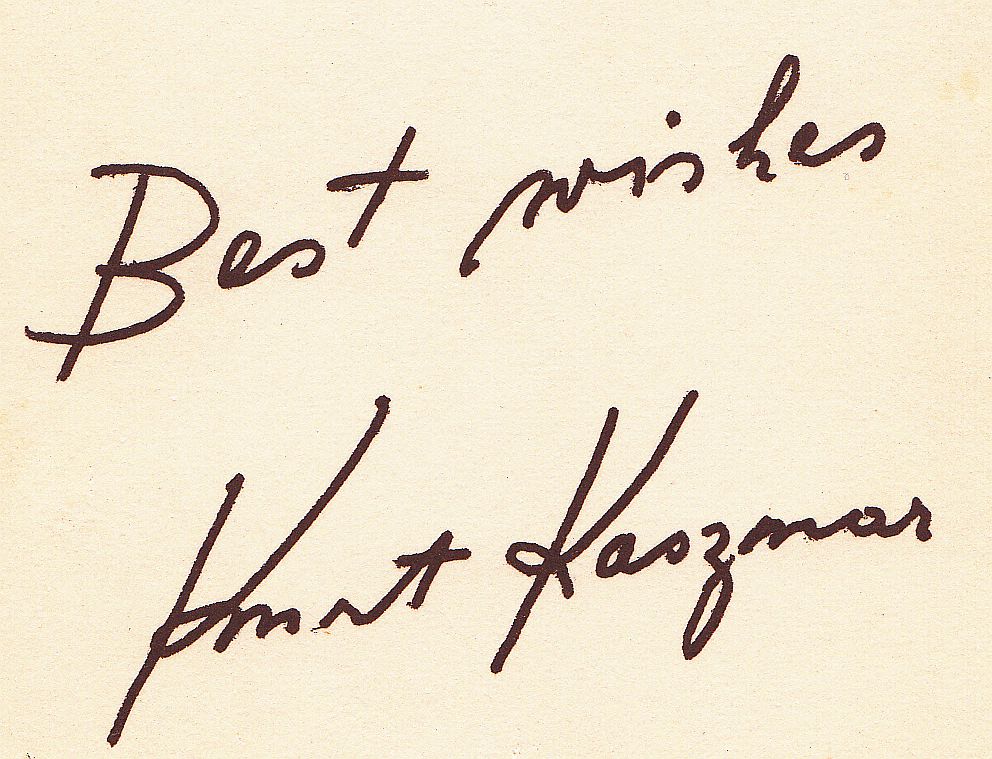 Best wishes
Kurt Kasznar